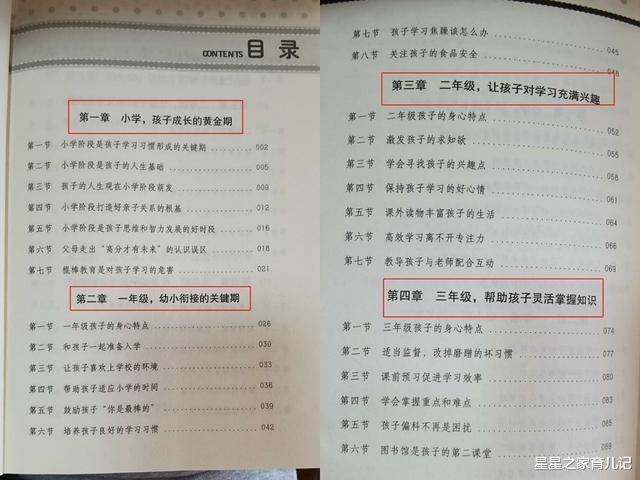 CONTENTS 目 录
第一章 小学，孩子成长的黄金期
第一节 小学阶段是孩子学习习惯形成的关键期 002
第二节 小学阶段是孩子的人生基础 005
第三节 孩子的人生观在小学阶段萌发 009
第四节 小学阶段打造好亲子关系的根基 012
第五节 小学阶段是孩子思维和智力发展的好时段 016
第六节 父母走出“高分才有未来”的认识误区 018
第七节 棍棒教育是对孩子学习的危害 021
第二章 一年级，幼小衔接的关键期
第一节 一年级孩子的身心特点 026
第二节 和孩子一起准备入学 030
第三节 让孩子喜欢上学校的环境 033
第四节 帮助孩子适应小学的时间 036
第五节 鼓励孩子“你是最棒的” 039
第六节 培养孩子良好的学习习惯 042
第七节 孩子学习焦躁该怎么办 045
第八节 关注孩子的食品安全 048
第三章 二年级，让孩子对学习充满兴趣
第一节 二年级孩子的身心特点 052
第二节 激发孩子的求知欲 055
第三节 学会寻找孩子的兴趣点 058
第四节 保持孩子学习的好心情 061
第五节 课外读物丰富孩子的生活 064
第六节 高效学习离不开专注力 066
第七节 教导孩子与老师配合互动 069
第四章 三年级，帮助孩子灵活掌握知识
第一节 三年级孩子的身心特点 074
第二节 适当监督，改掉磨蹭的坏习惯 077
第三节 课前预习促进学习效率 080
第四节 学会掌握重点和难点 083
第五节 孩子偏科不再是困扰 085
第六节 图书馆是孩子的第二课堂 089
星星之家育儿记